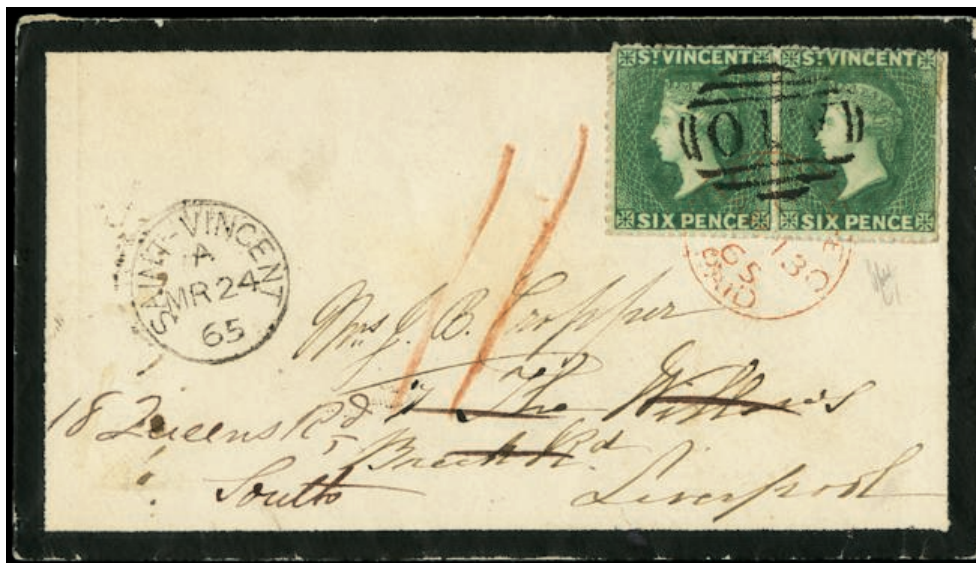 ST VINCENT ST VINCENT
SIX PENCE SIX PENCE
SAINT-VINCENT
A
MR 24
65
65
PAID
11
Mrs J. B. Cropper
The Willows
18 Queens Rd
Breck Rd
South Liverpool